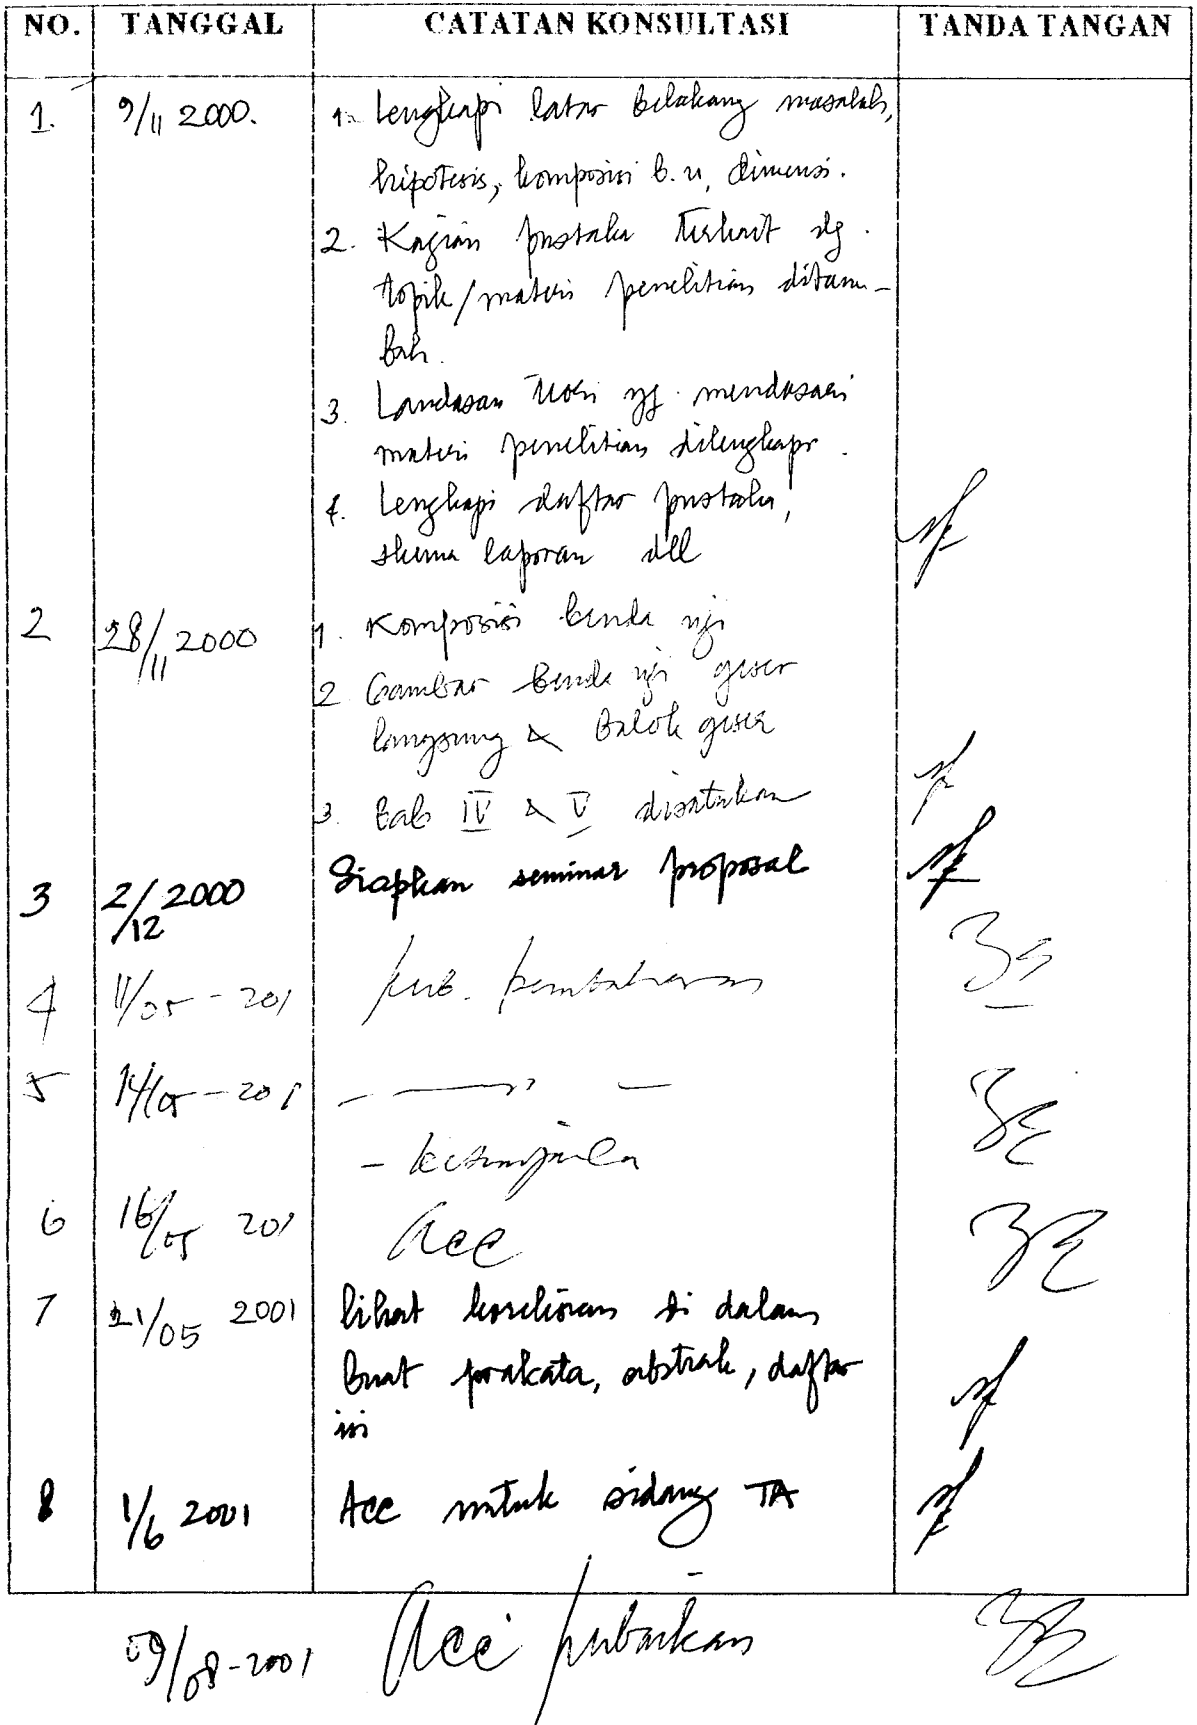 NO. TANGGAL CATATAN KONSULTASI TANDA TANGAN
1. 9/11 2000. 1. Lengkapi latar belakang masalah,
hipotesis, komposisi b.u, dimensi.
2. Kajian pustaka terkait dg.
topik/materi penelitian ditam-
bah.
3. Landasan teori yg. mendasari
materi penelitian dilengkapi.
4. Lengkapi daftar pustaka,
skema laporan dll
2 28/11 2000 1. Komposisi benda uji
2. Gambar benda uji geser
langsung & balok geser
3. Bab IV & V disatukan
3 2/12 2000 Siapkan seminar proposal
4 11/05-201 pembahasan
5 14/05-201
- kesimpulan
6 16/05 201 Acc
7 21/05 2001 lihat koreksian di dalam
buat prakata, abstrak, daftar
isi
8 1/6 2001 Acc untuk sidang TA
09/08-2001 Acc perbaikan